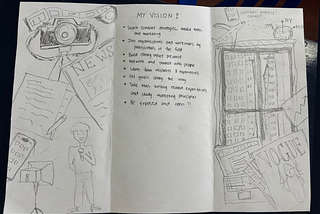 MY VISION!
• Learn content strategies, media roles
and marketing
• Join organizations and workshops by
professionals in the field
• Build strong talent present
• Network and connect with people
• Learn from mistakes & experiences
• Set goals along the way
• Take their writing related experiences
and study marketing principles
• Be exposed and open !!
NEWS
NY
VOGUE